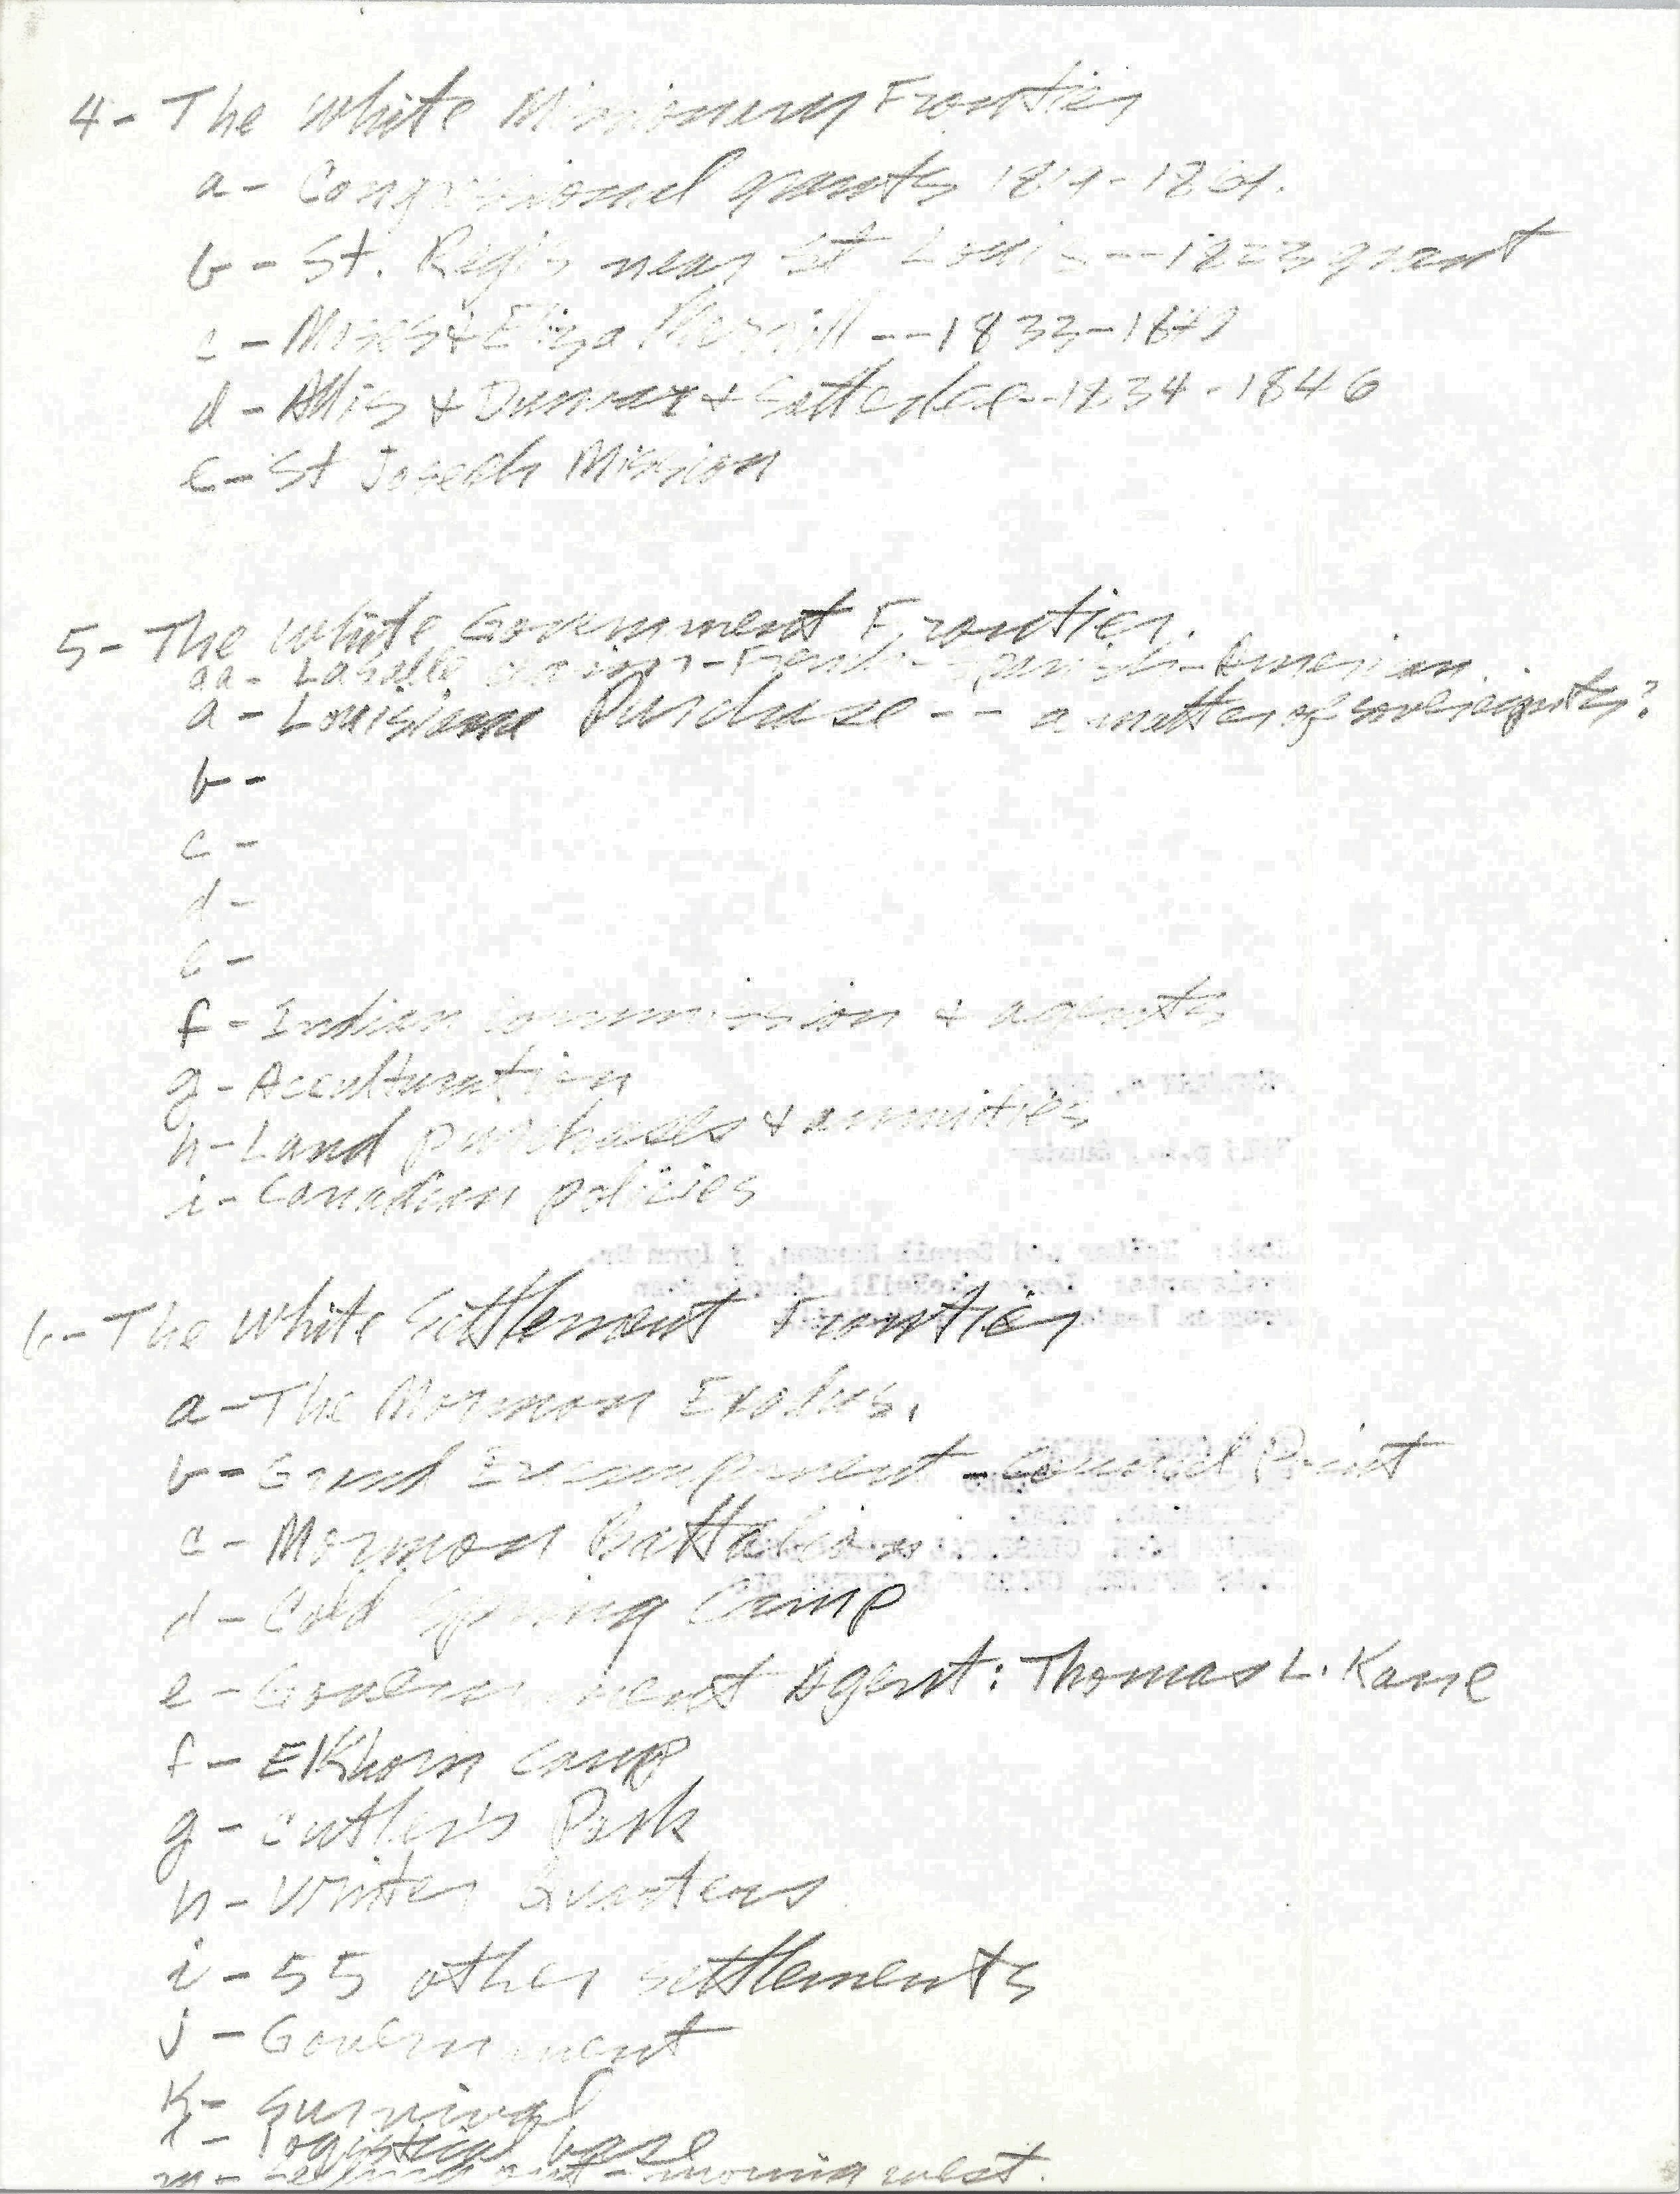 4- The White Missionary Frontier
a- Congressional grants
b- St. Regis near St Louis---1823 grant
c- Moses & Eliza Merrill ---1833-
d- Allis & Dunbar & Satterlee--1834-1846
e- St Joseph Mission
5- The White Government Frontier.
aa- LaSalle -French-Spanish-American.
a- Louisiana Purchase -- a matter of sovereignty?
b-
c-
d-
e-
f- Indian commission & agents
g- Acculturation
h- Land purchases & annuities
i- Canadian policies
6- The White Settlement Frontier
a- The Mormon Exodus.
b- Grand Encampment - Council Point
c- Mormon Battalion
d- Cold Spring Camp
e- Government Agent: Thomas L. Kane
f- Elkhorn Camp
g- Cutler's Park
h- Winter Quarters
i- 55 other settlements
j- Government
k- Survival
l- logistical base
m- out - moving west.